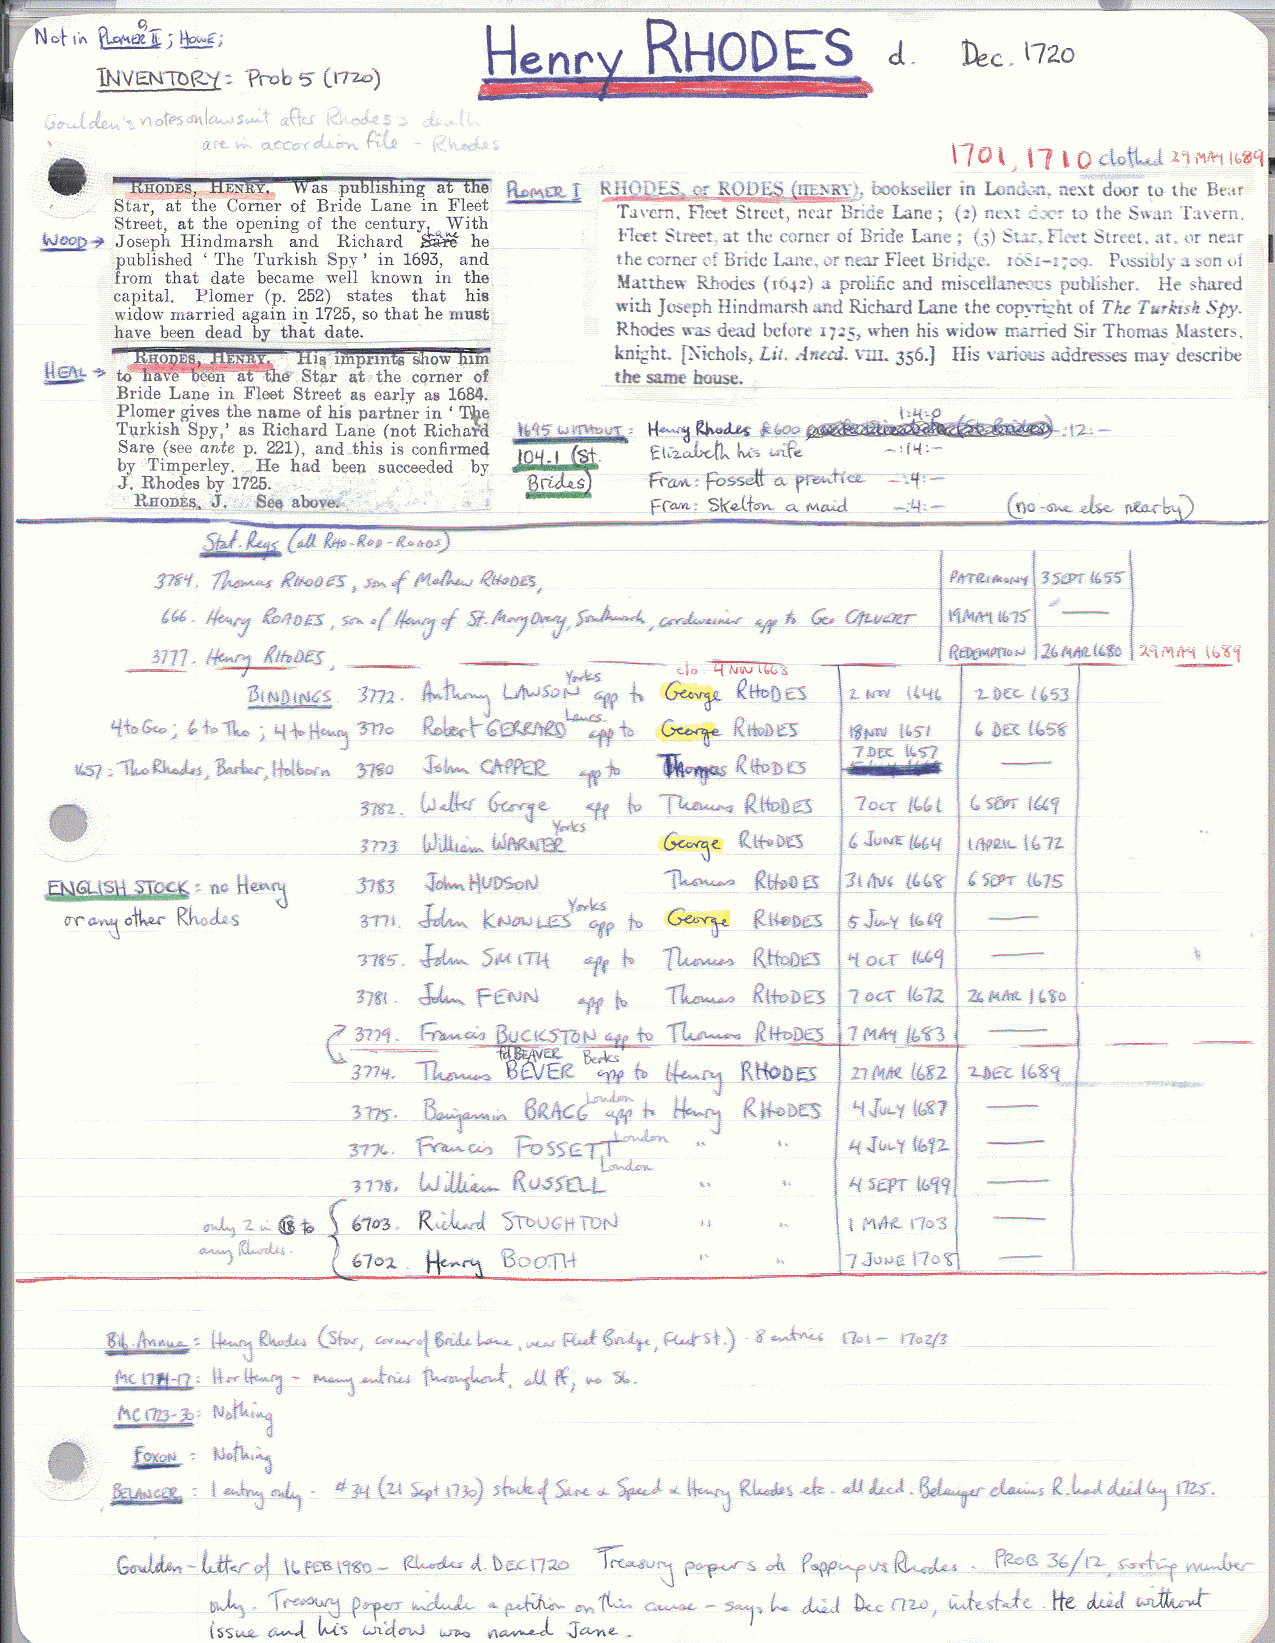 Not in PLOMER II; HOWE;
Henry RHODES d. Dec. 1720
INVENTORY: Prob 5 (1720)
Goulden's notes on lawsuit after Rhodes's death
are in accordion file - Rhodes
1701, 1710 clothed 29 MAY 1689
WOOD →
RHODES, HENRY. Was publishing at the
Star, at the Corner of Bride Lane in Fleet
Street, at the opening of the century. With
Joseph Hindmarsh and Richard Sare Lane he
published ' The Turkish Spy ' in 1693, and
from that date became well known in the
capital. Plomer (p. 252) states that his
widow married again in 1725, so that he must
have been dead by that date.
HEAL →
RHODES, HENRY. His imprints show him
to have been at the Star at the corner of
Bride Lane in Fleet Street as early as 1684.
Plomer gives the name of his partner in ' The
Turkish Spy,' as Richard Lane (not Richard
Sare (see ante p. 221), and this is confirmed
by Timperley. He had been succeeded by
J. Rhodes by 1725.
RHODES, J. See above.
PLOMER I
RHODES, or RODES (HENRY), bookseller in London, next door to the Bear
Tavern, Fleet Street, near Bride Lane; (2) next door to the Swan Tavern,
Fleet Street, at the corner of Bride Lane; (3) Star, Fleet Street, at, or near
the corner of Bride Lane, or near Fleet Bridge. 1681-1709. Possibly a son of
Matthew Rhodes (1642) a prolific and miscellaneous publisher. He shared
with Joseph Hindmarsh and Richard Lane the copyright of The Turkish Spy.
Rhodes was dead before 1725, when his widow married Sir Thomas Masters,
knight. [Nichols, Lit. Anecd. VIII. 356.] His various addresses may describe
the same house.
1:4:0
1695 WITHOUT: Henry Rhodes £600 (St. Brides) -:12:-
104.1 (St. Elizabeth his wife -:14:-
Brides) Fran: Fossett a prentice -:4:-
Fran: Skelton a maid -:4:- (no-one else nearby)
Stat. Regs (all RHO-ROD-ROADS)
3784. Thomas RHODES, son of Mathew RHODES, PATRIMONY 3 SEPT 1655
666. Henry ROADES, son of Henry of St. Mary Overy, Southwark, cordwainer app to Geo CALVERT 19 MAY 1675 —
3777. Henry RHODES, REDEMPTION 26 MAR 1680 29 MAY 1689
c/o 4 NOV 1663
BINDINGS 3772. Anthony LAWSON Yorks app to George RHODES 2 NOV 1646 2 DEC 1653
4 to Geo; 6 to Tho; 4 to Henry 3770 Robert GERRARD Lancs. app to George RHODES 18 NOV 1651 6 DEC 1658
1657: Tho Rhodes, Barber, Holborn 3780 John CAPPER app to Thomas RHODES 7 DEC 1657 —
3782. Walter George app to Thomas RHODES 7 OCT 1661 6 SEPT 1669
3773 William WARNER Yorks George RHODES 6 JUNE 1664 1 APRIL 1672
ENGLISH STOCK: no Henry
or any other Rhodes
3783 John HUDSON Thomas RHODES 31 AUG 1668 6 SEPT 1675
3771. John KNOWLES Yorks app to George RHODES 5 JULY 1669 —
3785. John SMITH app to Thomas RHODES 4 OCT 1669 —
3781. John FENN app to Thomas RHODES 7 OCT 1672 26 MAR 1680
3779. Francis BUCKSTON app to Thomas RHODES 7 MAY 1683 —
3774. Thomas BEVER td BEAVER Berks app to Henry RHODES 27 MAR 1682 2 DEC 1689
3775. Benjamin BRAGG London app to Henry RHODES 4 JULY 1687 —
3776. Francis FOSSETT London " " 4 JULY 1692 —
3778. William RUSSELL London " " 4 SEPT 1699 —
only 2 in 18 to
any Rhodes.
6703. Richard STOUGHTON " " 1 MAR 1703 —
6702. Henry BOOTH " " 7 JUNE 1708 —
Bib. Annua: Henry Rhodes (Star, corner of Bride Lane, near Fleet Bridge, Fleet St.) - 8 entries 1701-1702/3
MC 1714-17: H or Henry - many entries throughout, all Pf, no Sb.
MC 1723-30: Nothing
FOXON: Nothing
BELANGER: 1 entry only - #34 (21 Sept 1730) stock of Sare & Speed & Henry Rhodes etc. all decd. Belanger claims R. had died by 1725.
Goulden - letter of 16 FEB 1980 - Rhodes d. DEC 1720 Treasury papers on Popping vs Rhodes. PROB 36/12, sorting number
only. Treasury papers include a petition on this cause - says he died Dec 1720, intestate. He died without
issue and his widow was named Jane.